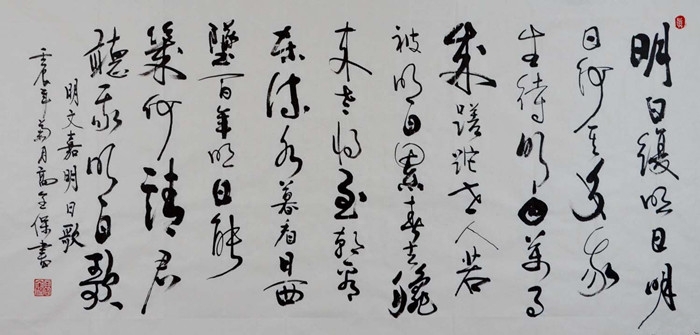 明日復明日明
日何其多我
生待明日萬事
成蹉跎世人若
被明日累春去秋
来老將至朝看
東流水暮看日西
墜百年明日能
幾何請君
聽我明日歌
明文嘉明日歌
壬辰年菊月高保書